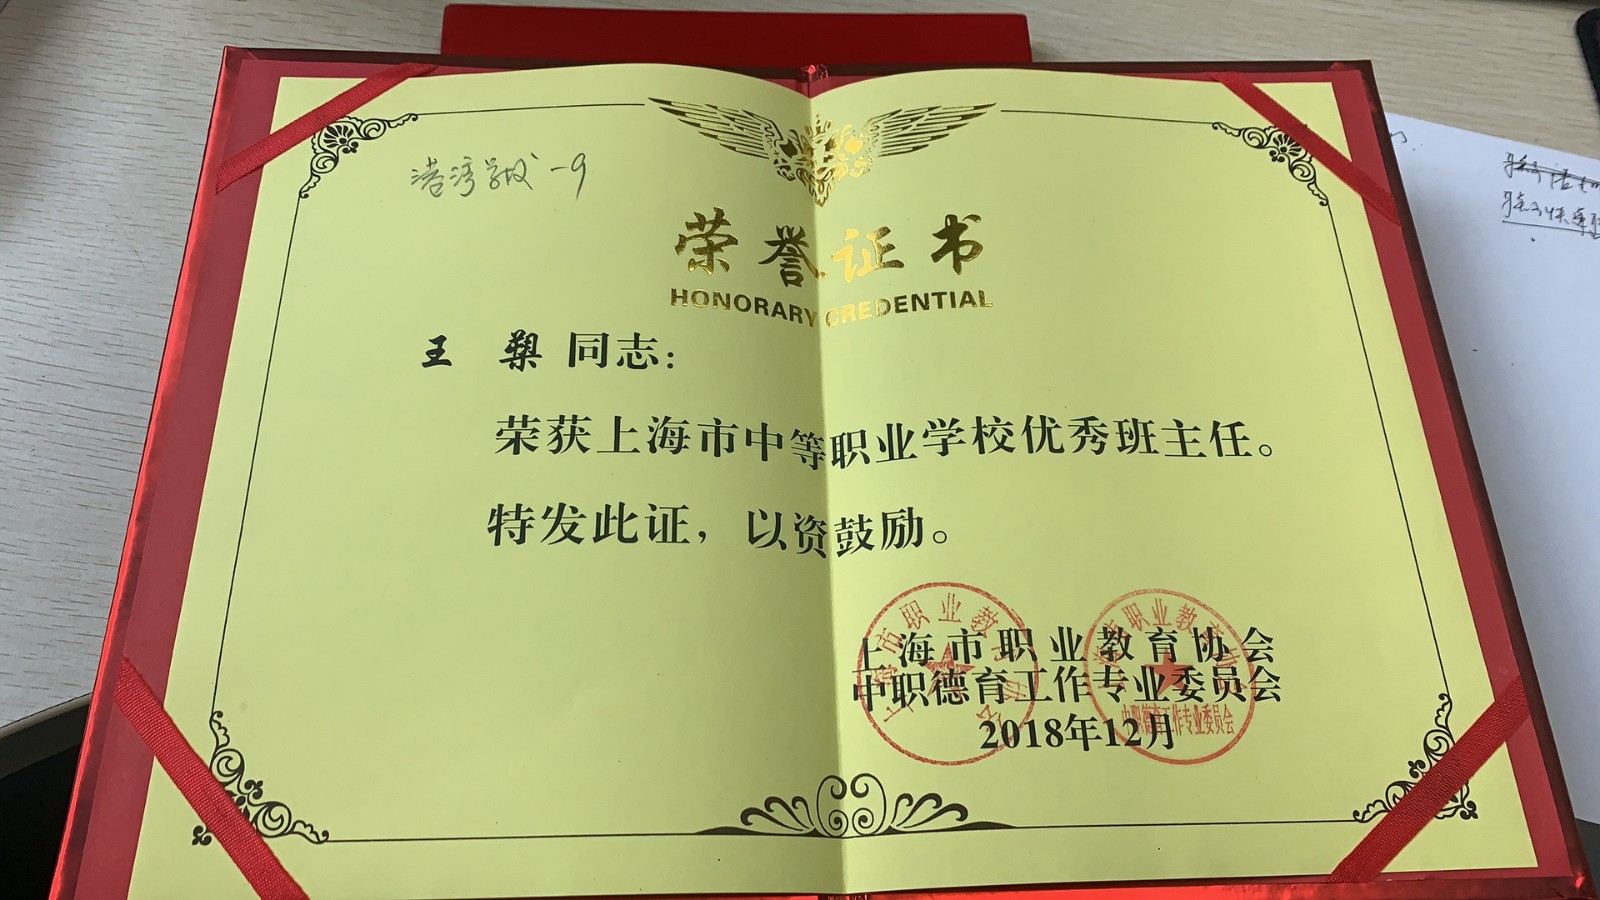 港湾学校 -9
荣誉证书
HONORARY CREDENTIAL
王 槊 同志：
荣获上海市中等职业学校优秀班主任。
特发此证，以资鼓励。
上海市职业教育协会
中职德育工作专业委员会
2018年12月
上海市职业教育协会
上海市职业教育协会
中职德育工作专业委员会